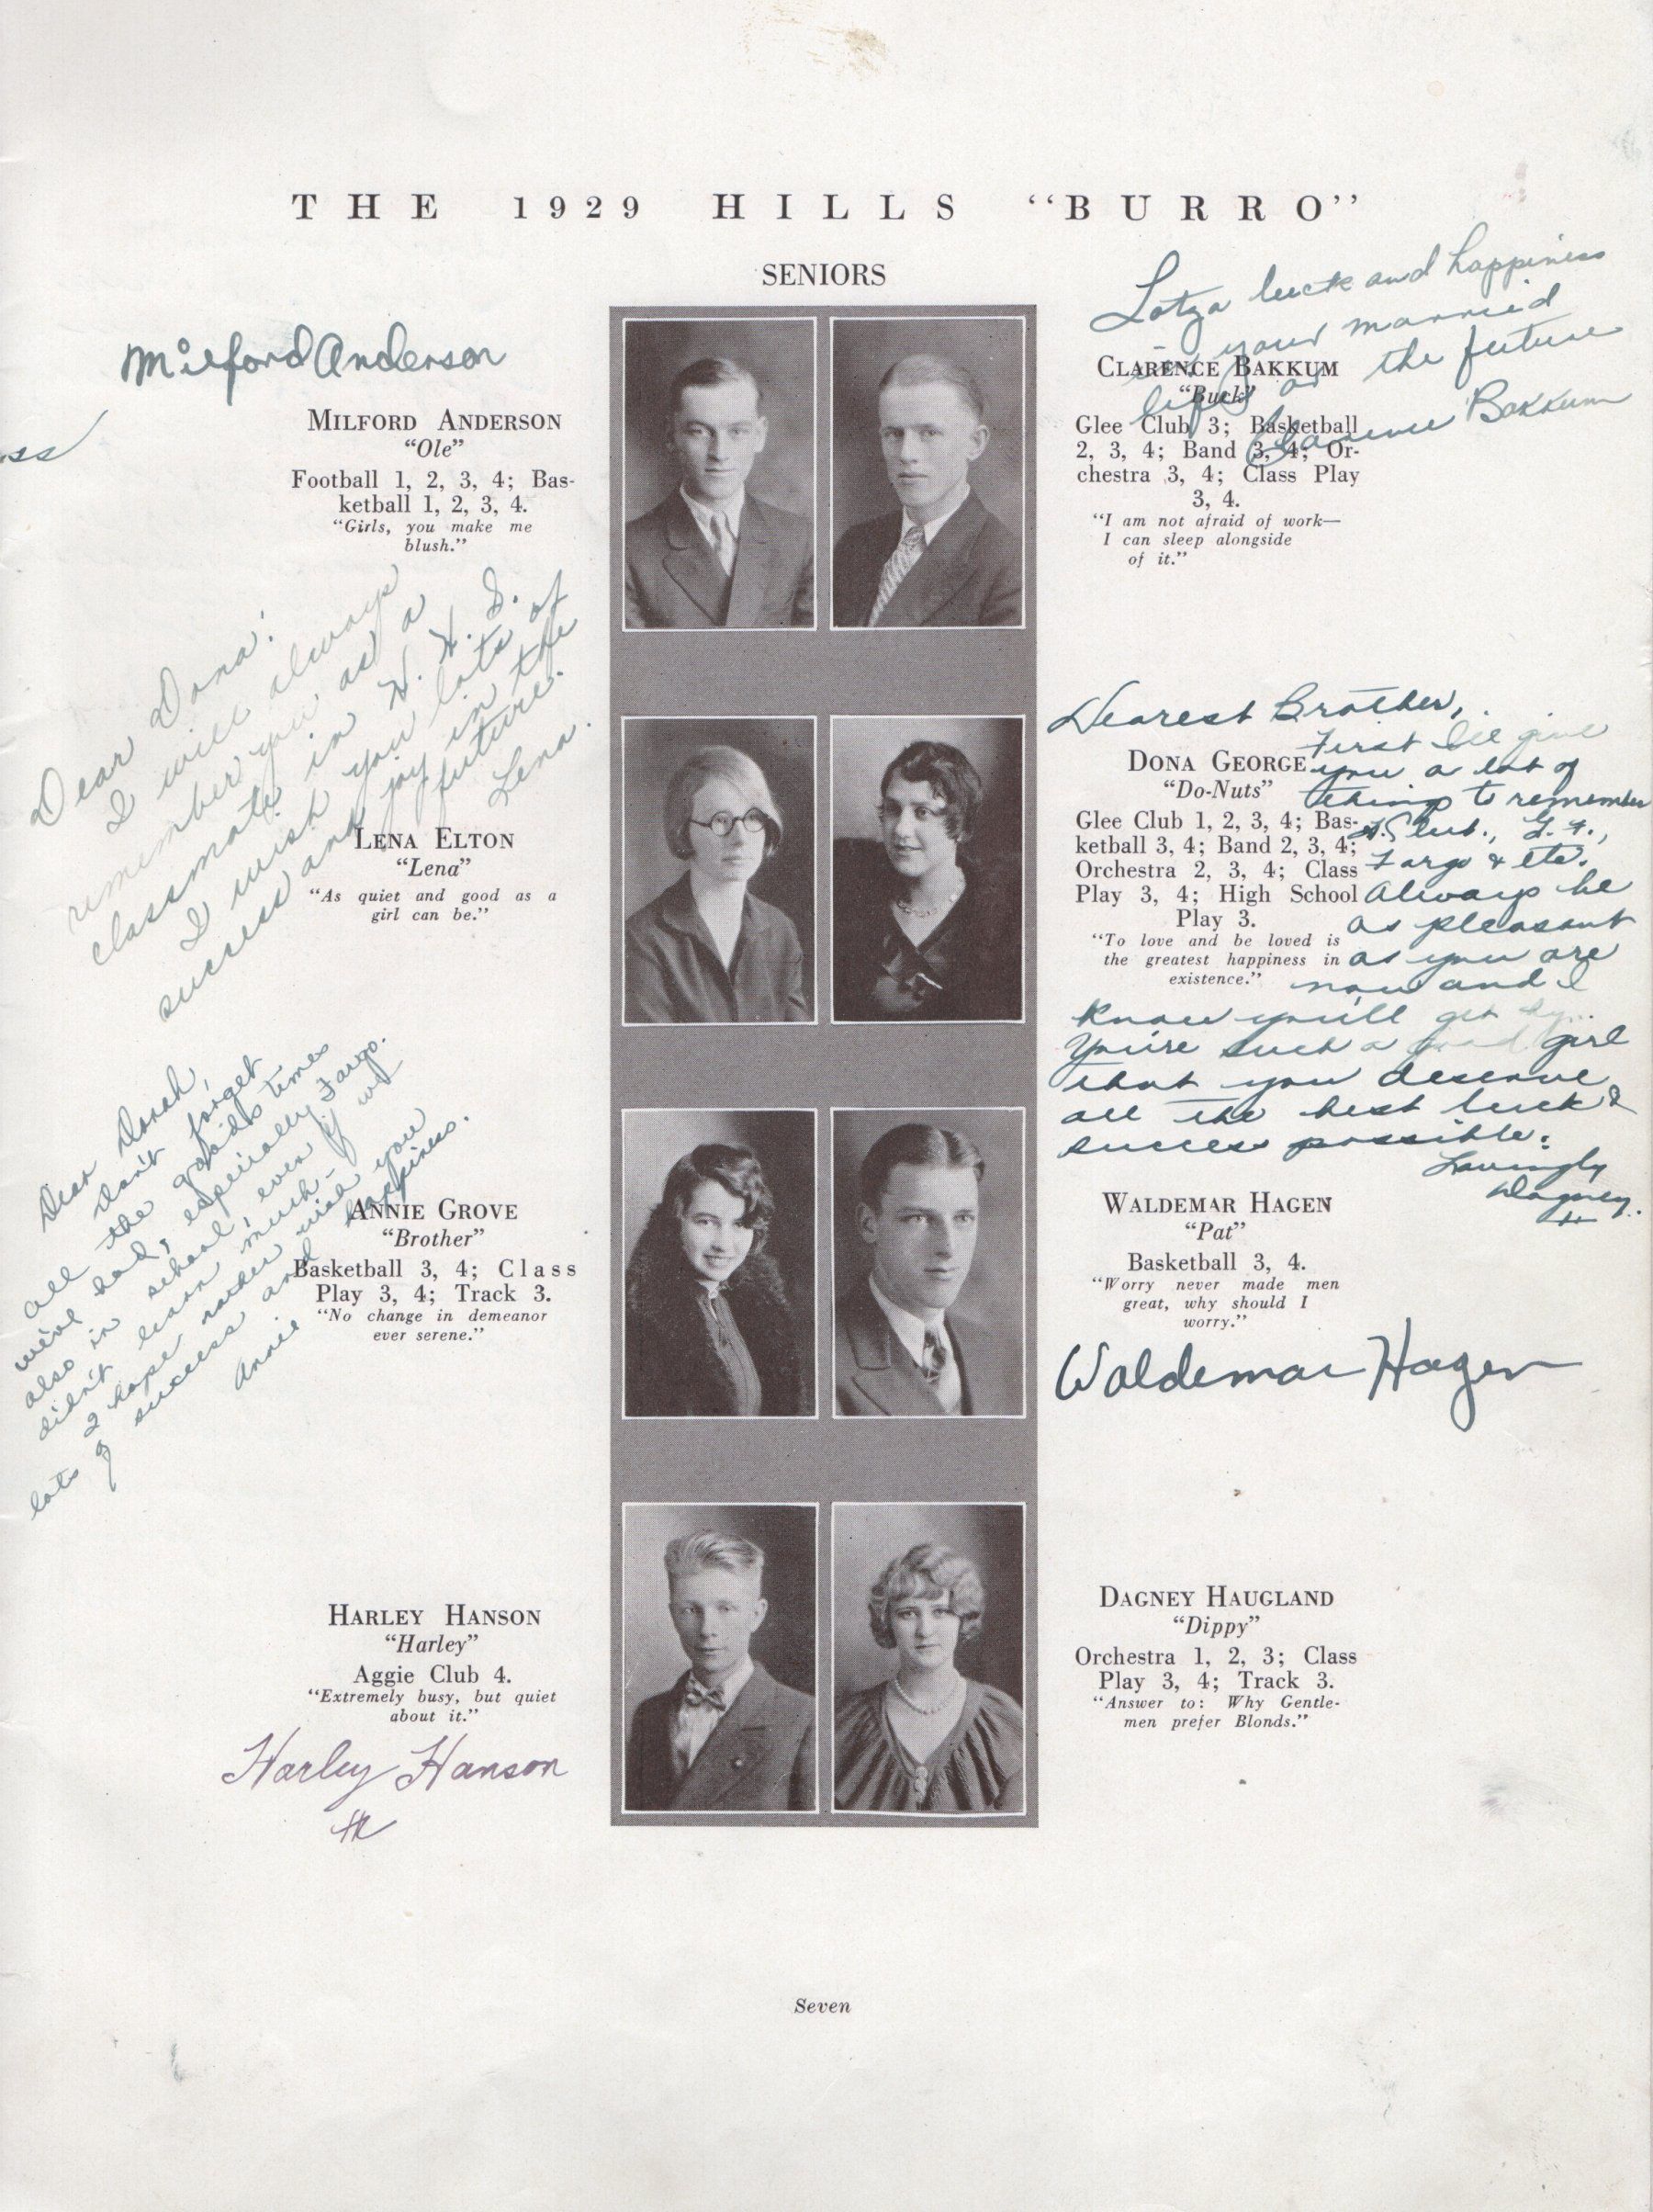 THE 1929 HILLS "BURRO"
SENIORS
Milford Anderson
MILFORD ANDERSON
"Ole"
Football 1, 2, 3, 4; Bas-
ketball 1, 2, 3, 4.
"Girls, you make me
blush."
Lotza luck and happiness
in your married
life or the future
Clarence Bakkum
CLARENCE BAKKUM
"Buck"
Glee Club 3; Basketball
2, 3, 4; Band 3, 4; Or-
chestra 3, 4; Class Play
3, 4.
"I am not afraid of work—
I can sleep alongside
of it."
Dear Dona:
I will always
remember you as a
classmate in H. H. S.
I wish you lots of
success and joy in the
future.
Lena.
LENA ELTON
"Lena"
"As quiet and good as a
girl can be."
Dearest Brother,
First I'll give
you a lot of
things to remember
Club., G. F.,
Fargo & etc.
Always be
as pleasant
as you are
now and I
know you'll get by.
You're such a good girl
that you deserve
all the best luck &
success possible.
Lovingly
Dagney.
H
DONA GEORGE
"Do-Nuts"
Glee Club 1, 2, 3, 4; Bas-
ketball 3, 4; Band 2, 3, 4;
Orchestra 2, 3, 4; Class
Play 3, 4; High School
Play 3.
"To love and be loved is
the greatest happiness in
existence."
Dear Donah,
Don't forget
all the good times
we've had, especially Fargo.
also in school, even if we
didn't learn much-
I hope rather wish you
lots of success and happiness.
Annie
ANNIE GROVE
"Brother"
Basketball 3, 4; Class
Play 3, 4; Track 3.
"No change in demeanor
ever serene."
WALDEMAR HAGEN
"Pat"
Basketball 3, 4.
"Worry never made men
great, why should I
worry."
Waldemar Hagen
HARLEY HANSON
"Harley"
Aggie Club 4.
"Extremely busy, but quiet
about it."
Harley Hanson
DAGNEY HAUGLAND
"Dippy"
Orchestra 1, 2, 3; Class
Play 3, 4; Track 3.
"Answer to: Why Gentle-
men prefer Blonds."
Seven